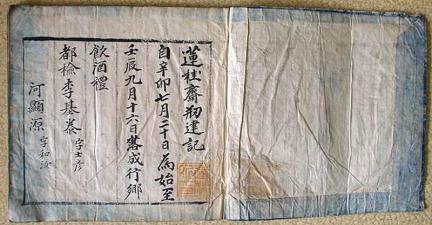 蓮桂齋刱建記
自辛卯七月二十日為始至
壬辰九月十六日落成行鄉
飮酒禮
都檢李基泰字士彦
河顯源字和汝